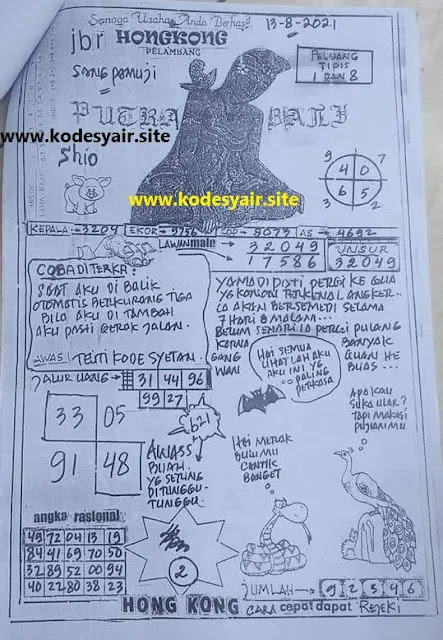 Semoga Usaha Anda Berhasil
13-8-2021
jbr HONGKONG
PELAMBANG
SANG PAMUJI
PELUANG
TIPIS
1 DAN 8
PUTRA
www.kodesyair.site
Shio
www.kodesyair.site
9 7
4 0
6 5
3 2
KEPALA -3204 EKOR -9756 COP -8073 AS - 4692
LAWANmain
3 2 0 4 9
1 7 5 8 6
UNSUR
3 2 0 4 9
COBA DITERKA:
SAAT AKU DI BALIK
OTOMATIS BERKURANG TIGA
BILA AKU DI TAMBAH
AKU PASTI GERAK JALAN.
AWAS! TEITI KODE SYETAN.
YAMADIPATI PERGI KE GUA
YG KONON TERKENAL ANGKER..
IA AKAN BERSEMEDI SELAMA
7 HARI 8 MALAM...
BELUM SEHARI IA PERGI PULANG
KARNA BANYAK
GANG GUAN HE
WAN BUAS ...
JALUR UANG
31 44 96
99 27
HAI SEMUA
LIHATLAH AKU
AKU INI YG
PALING
PERKASA
33 05
91 48
621
AWASS
BUAH.
YG SERING
DITUNGGU-
TUNGGU.
HEI MERAK
BULUMU
CANTIK
BANGET
APA KAU
SUKA ULAR?
TAPI MAKASI
PUJIANMU
angka rasional
49 72 04 13 19
84 41 69 70 50
32 89 52 00 94
40 22 80 38 23
2
JUMLAH 9 2 5 4 6
HONG KONG CARA cepat dapat REJEKI